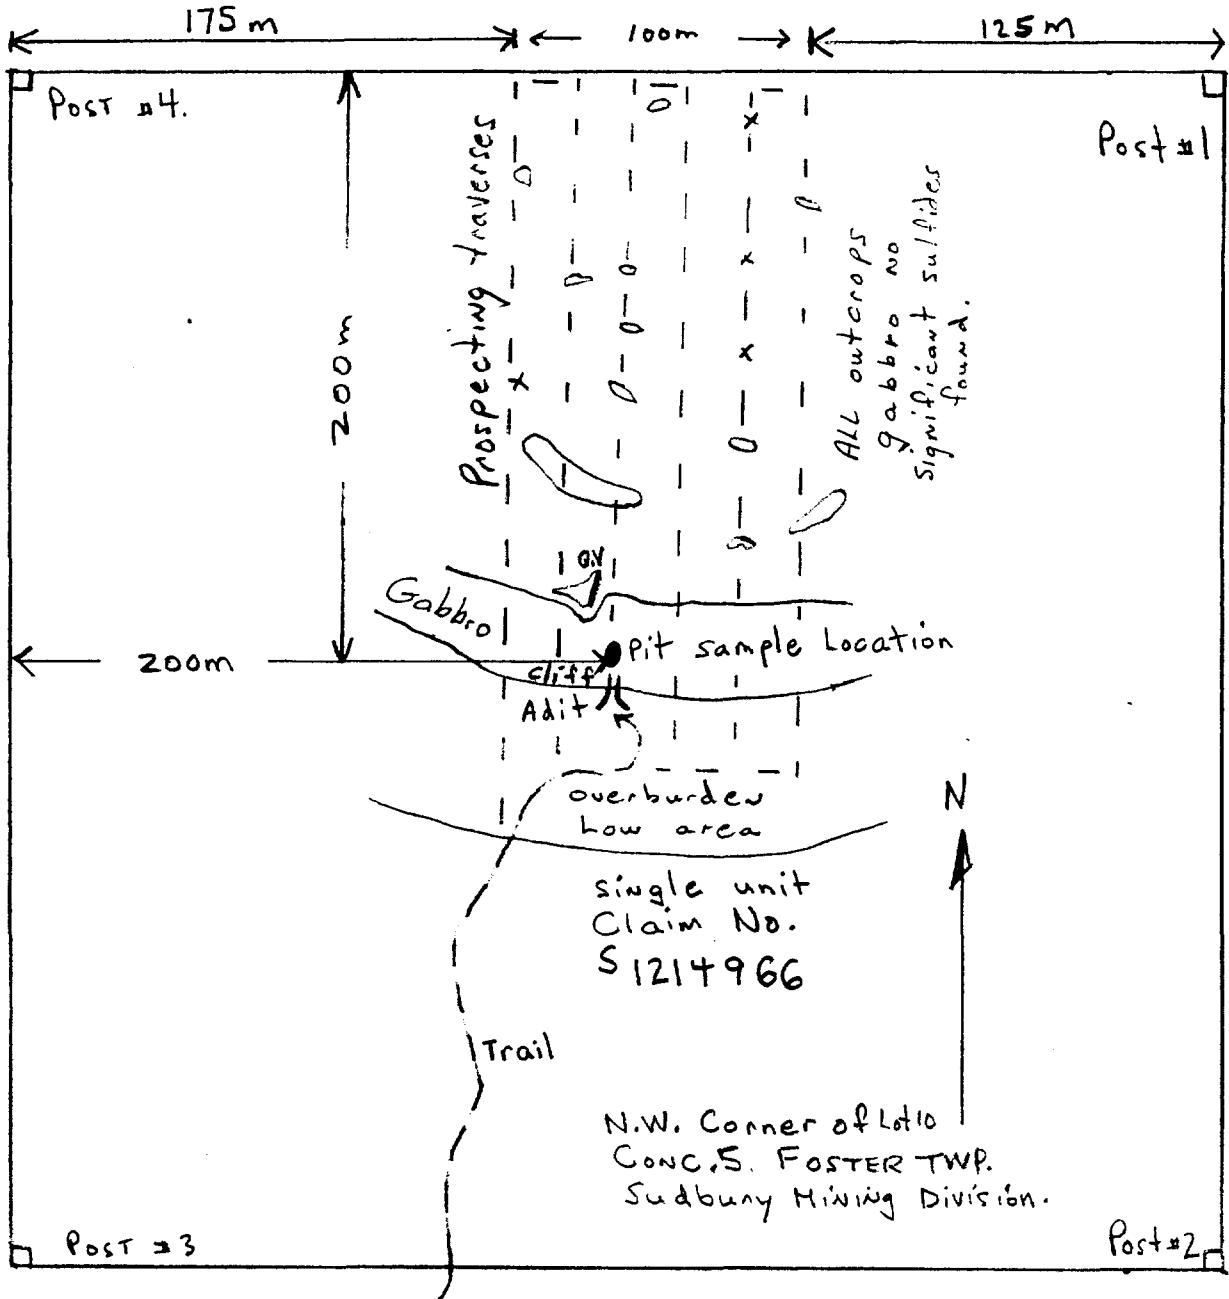 175m
100m
125m
Post #4.
Post #1
Prospecting traverses
200m
ALL outcrops
gabbro no
significant sulfides
found.
Q.V
Gabbro
Pit sample Location
200m
cliff
Adit
overburden
Low area
N
single unit
Claim No.
S 1214966
Trail
N.W. Corner of Lot 10
CONC.5. FOSTER TWP.
Sudbury Mining Division.
Post #3
Post #2